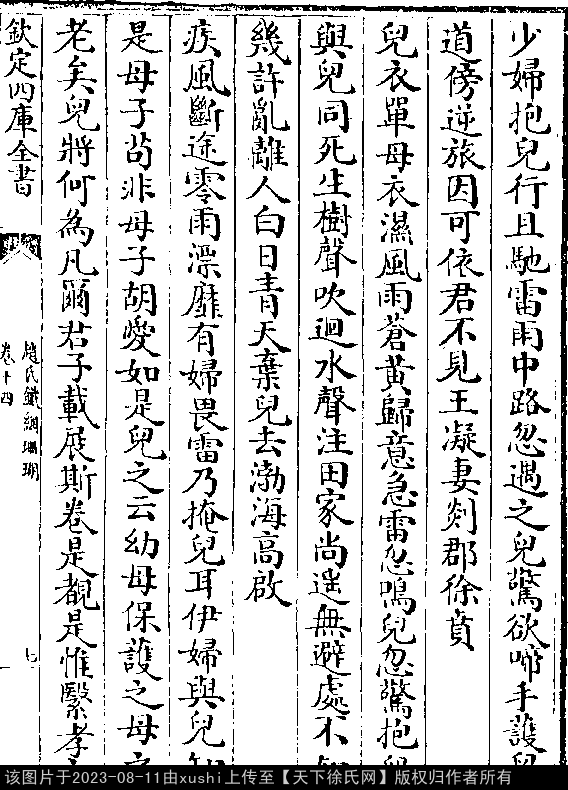 少婦抱兒行且馳雷雨中路忽遇之兒驚欲啼手護
道傍逆旅因可依君不見王凝妻剡郡徐賁
兒衣單母衣濕風雨蒼黃歸意急雷忽鳴兒忽驚抱
與兒同死生樹聲吹迴水聲注田家尚遥無避處不
幾許亂離人白日青天棄兒去渤海高啟
疾風斷途零雨漂靡有婦畏雷乃掩兒耳伊婦與兒
是母子茍非母子胡愛如是兒之云幼母保護之母
老矣兒將何為凡爾君子載展斯卷是覩是惟繄孝
欽定四庫全書
趙氏鐵網珊瑚
卷十四
七
该图片于2023-08-11由xushi上传至【天下徐氏网】版权归作者所有